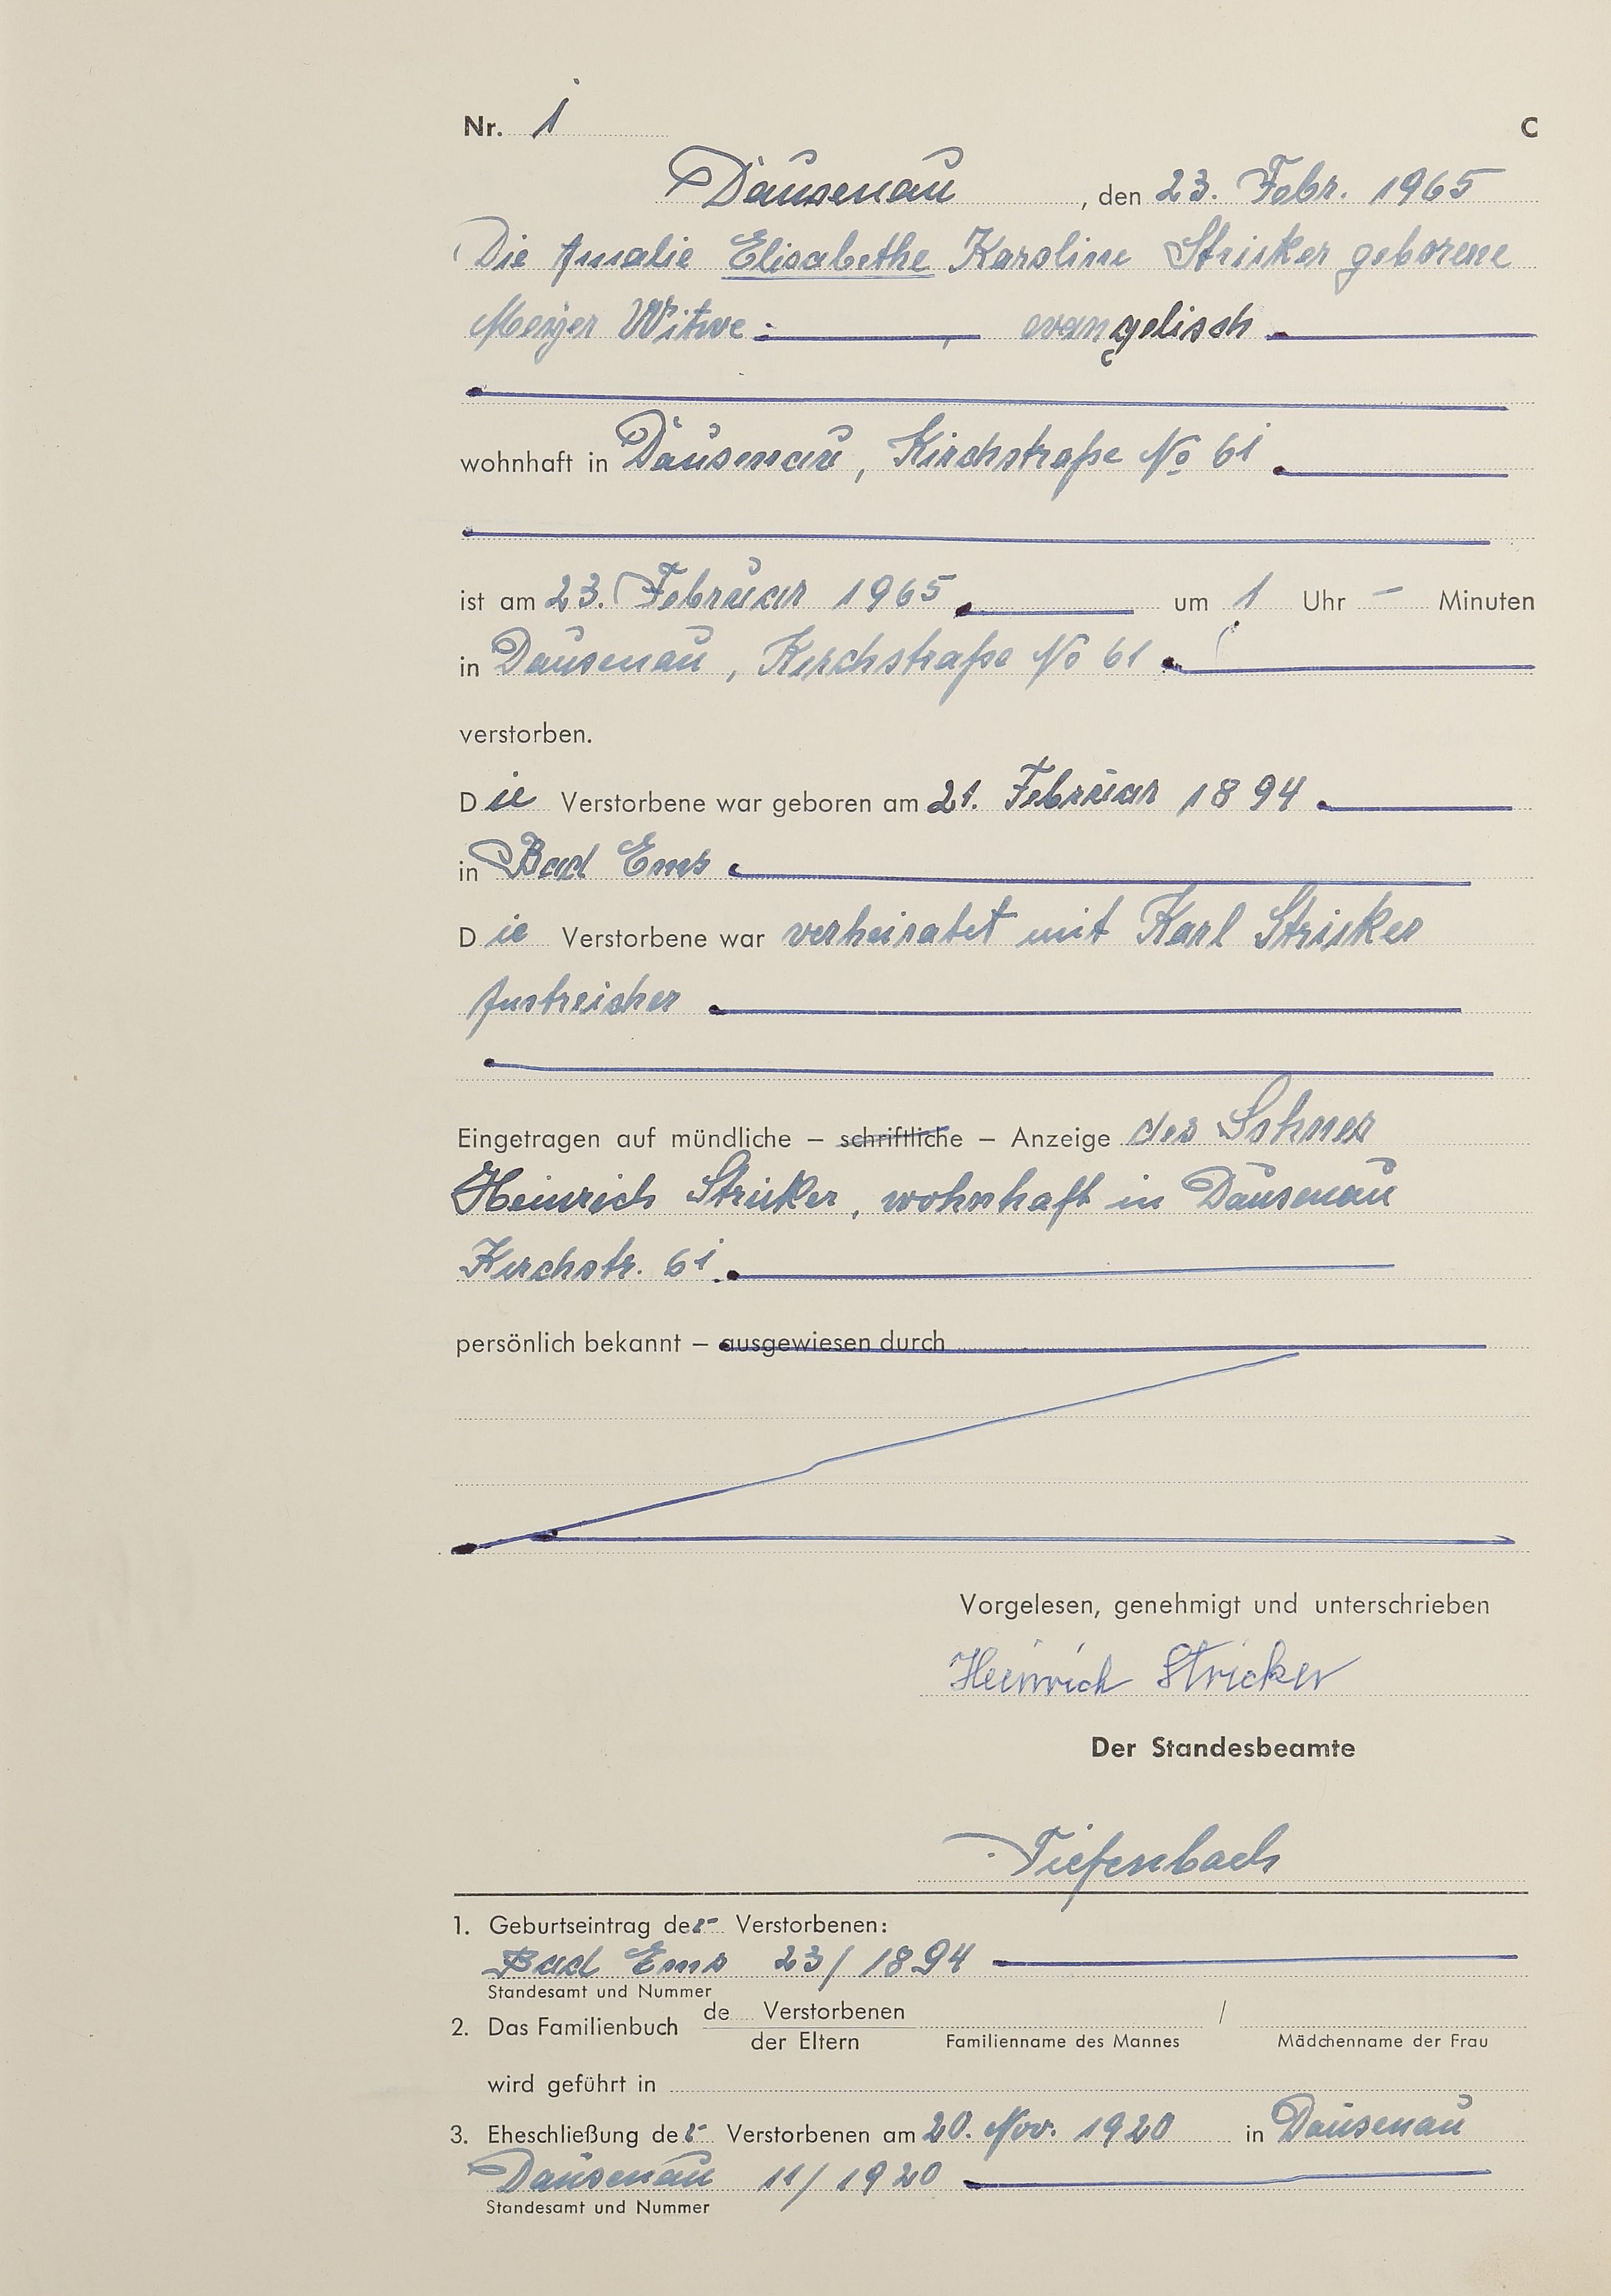 Nr. 1 C
Dausenau, den 23. Febr. 1965
Die Amalie Elisabethe Karoline Stricker geborene
Meyer Witwe, evangelisch
wohnhaft in Dausenau, Kirchstraße No 61
ist am 23. Februar 1965 um 1 Uhr – Minuten
in Dausenau, Kirchstraße No 61
verstorben.
Die Verstorbene war geboren am 21. Februar 1894
in Bad Ems
Die Verstorbene war verheiratet mit Karl Stricker
Anstreicher
Eingetragen auf mündliche – schriftliche – Anzeige des Sohnes
Heinrich Stricker, wohnhaft in Dausenau
Kirchstr. 61.
persönlich bekannt – ausgewiesen durch
Vorgelesen, genehmigt und unterschrieben
Heinrich Stricker
Der Standesbeamte
Tiefenbach
1. Geburtseintrag der Verstorbenen:
Bad Ems 23/1894
Standesamt und Nummer
2. Das Familienbuch de Verstorbenen /
der Eltern Familienname des Mannes Mädchenname der Frau
wird geführt in
3. Eheschließung der Verstorbenen am 20. Nov. 1920 in Dausenau
Dausenau 11/1920
Standesamt und Nummer